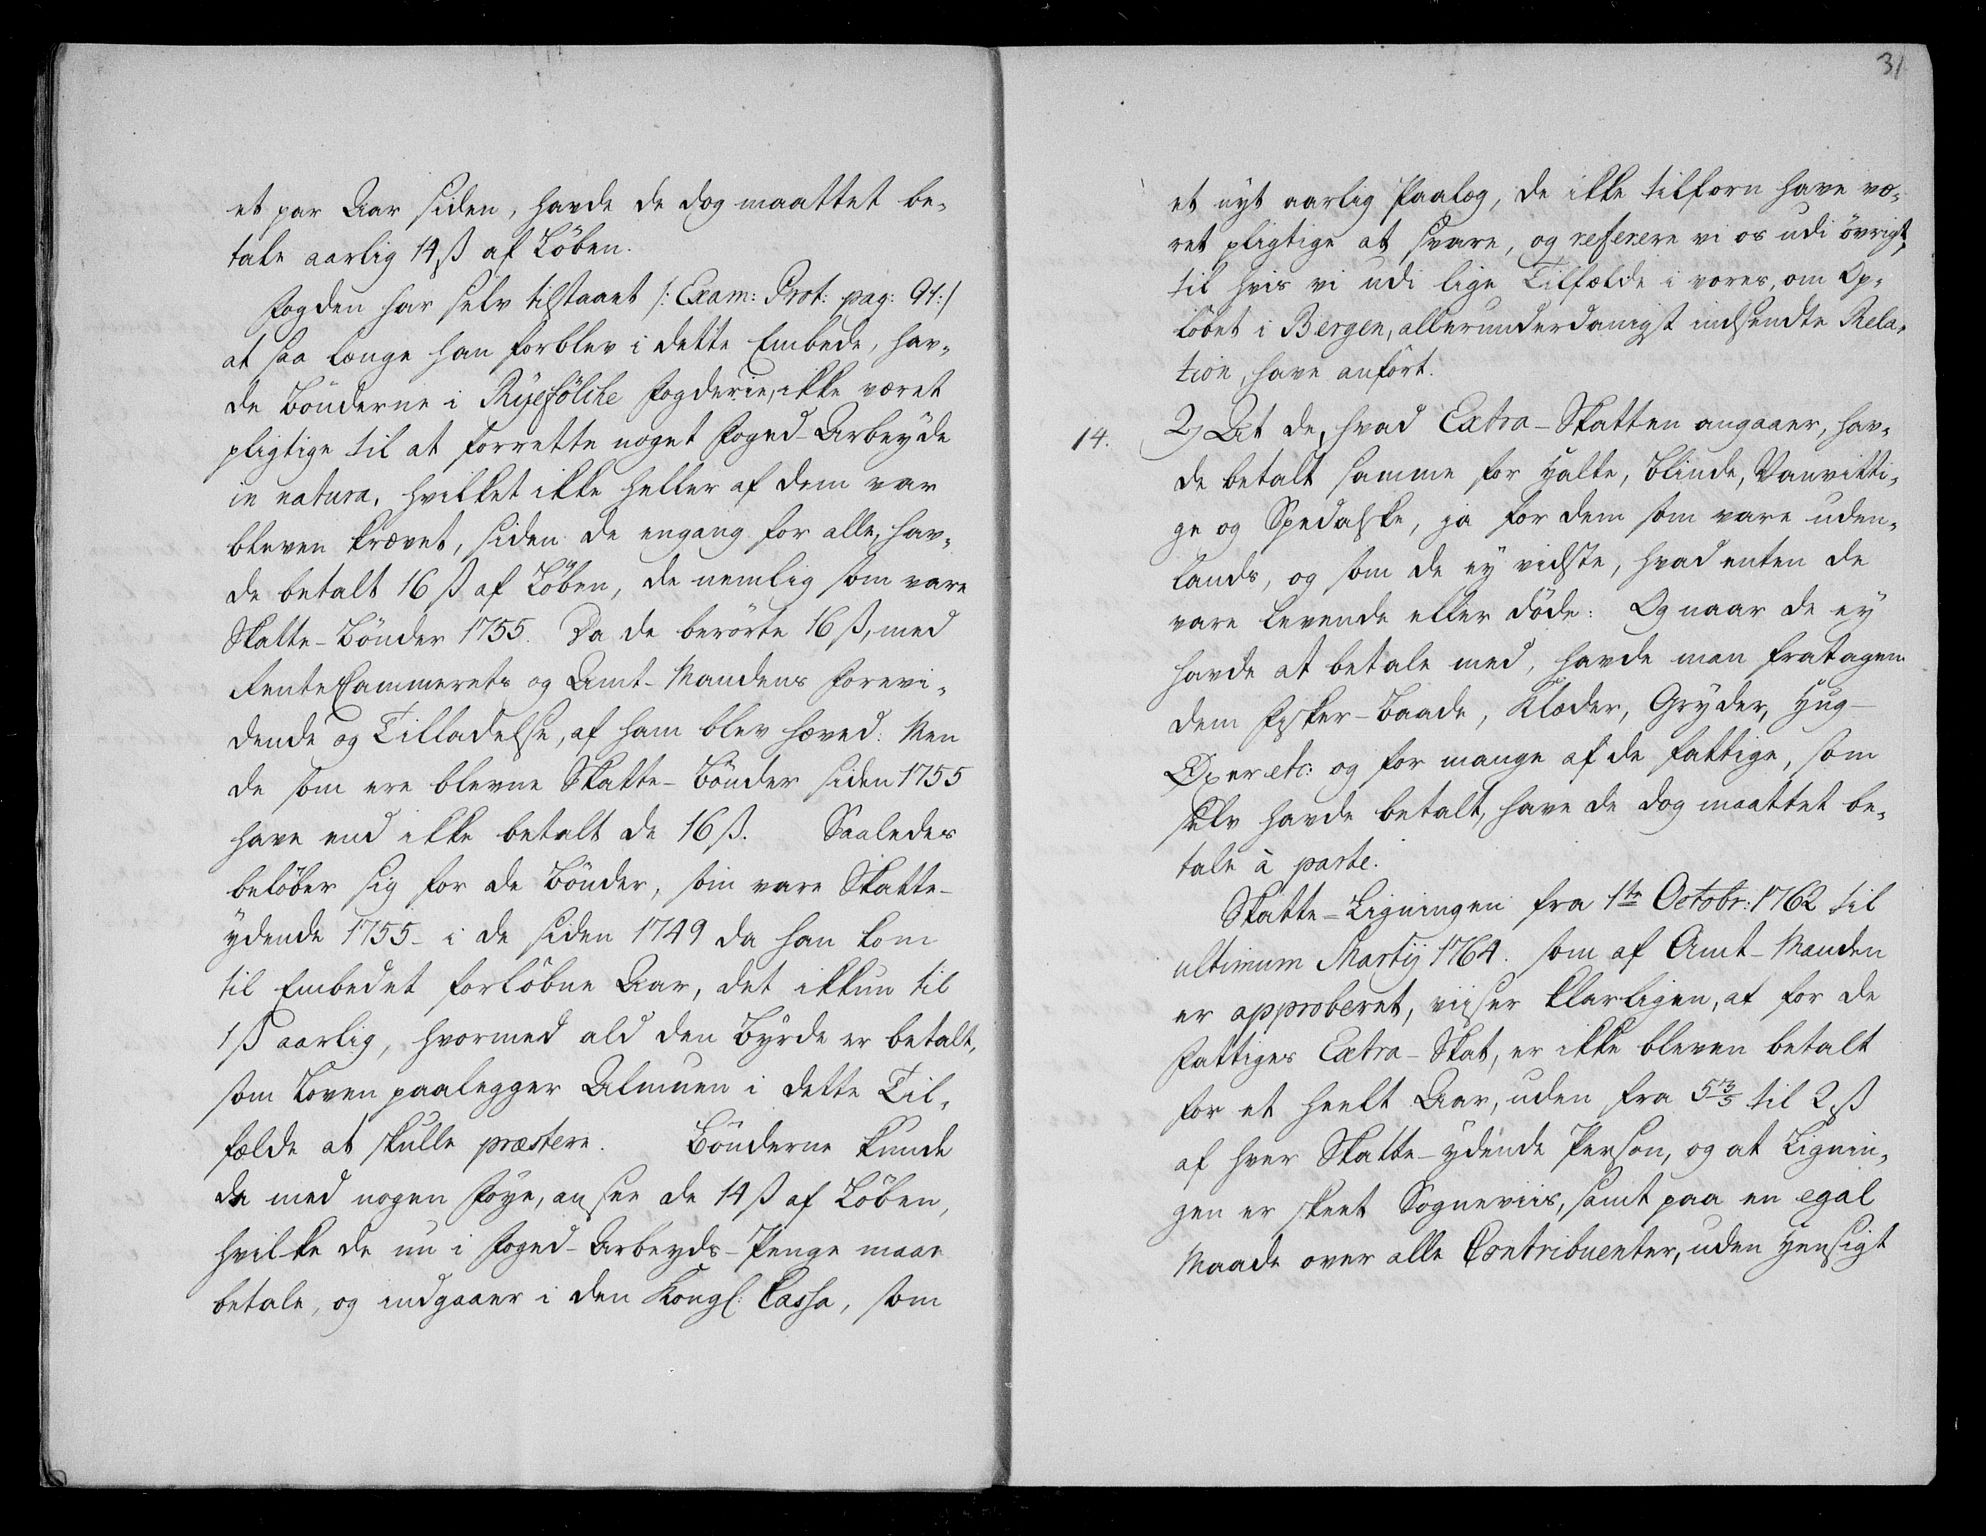 et par Aar siden, havde de dog maattet be-
tale aarlig 14 ß af Løben.
Fogden har selv tilstaaet /: Exam: Prot: pag: 91:/
at saa længe han forblev i dette Embede, hav-
de Bönderne i Ryefölche Fogderie, ikke været
pligtige til at forrette noget Foged-Arbeyde
in natura, hvilket ikke heller af dem var
bleven krævet, siden de engang for alle, hav-
de betalt 16 ß af Løben, de nemlig som vare
Skatte-Bönder 1755. Da de berörte 16 ß, med
RenteCammerets og Amt-Mandens Forevi-
dende og Tilladelse, af ham blev hæved. Men
de som ere blevne Skatte-Bönder siden 1755
have end ikke betalt de 16 ß. Saaledes
belöber sig for de Bönder, som vare Skatte-
ydende 1755 - i de siden 1749 da han kom
til Embedet forlöbne Aar, det ikkun til
1 ß aarlig, hvormed ald den Byrde er betalt,
som Loven paalegger Almuen i dette Til-
fælde at skulle præstere. Bönderne kunde
da med nogen Föye, ansee de 14 ß af Løben,
hvilke de nu i Foged-Arbeyds-Penge maae
betale, og indgaaer i den Kongl: Cassa, som
31
et nyt aarlig Paalæg, de ikke tilforn have væ-
ret pligtige at svare, og referere vi os udi övrigt,
til hvis vi udi lige Tilfælde i vores, om Op-
löbet i Bergen, allerunderdanigst indsendte Rela-
tion, have anfört.
14. 2) At de, hvad Extra-Skatten angaaer, hav-
de betalt samme for Halte, Blinde, Vanvitti-
ge og Spedalske, ja for dem som vare uden-
lands, og som de ey vidste, hvad enten de
vare levende eller döde: Og naar de ey
havde at betale med, havde man fratagen
dem Fisker-Baade, Klæder, Gryder, Hug-
Øxer etc: og for mange af de fattige, som
selv havde betalt, have de dog maattet be-
tale à parte.
Skatte-Ligningen fra 1te Octobr: 1762 til
ultimum Martij 1764. som af Amt-Manden
er approberet, viiser klarligen, at for de
Fattiges Extra-Skat, er ikke bleven betalt
for et heelt Aar, uden fra 5 3/5 til 2 ß
af hver Skatte-ydende Person, og at Lignin-
gen er skeet Sogneviis, samt paa en egal
Maade over alle Contribuenter, uden Hensigt